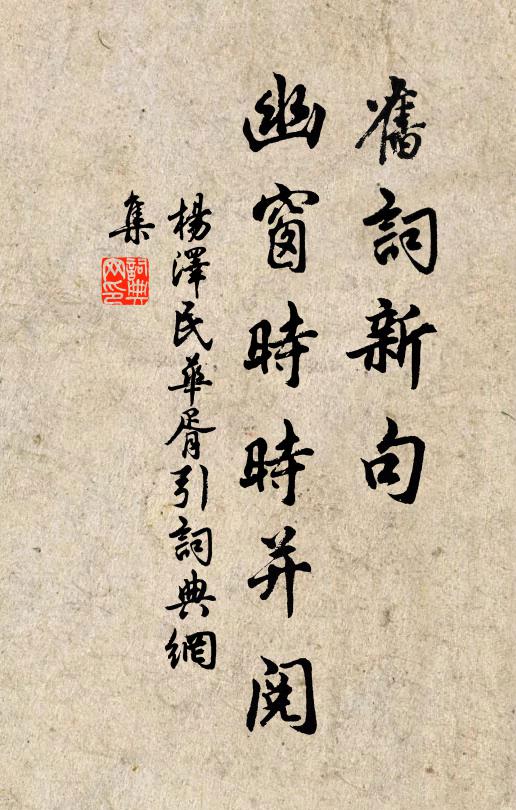 舊詞新句
幽窗時時并閱
楊澤民華胥引詞典網
集
詞典
网印